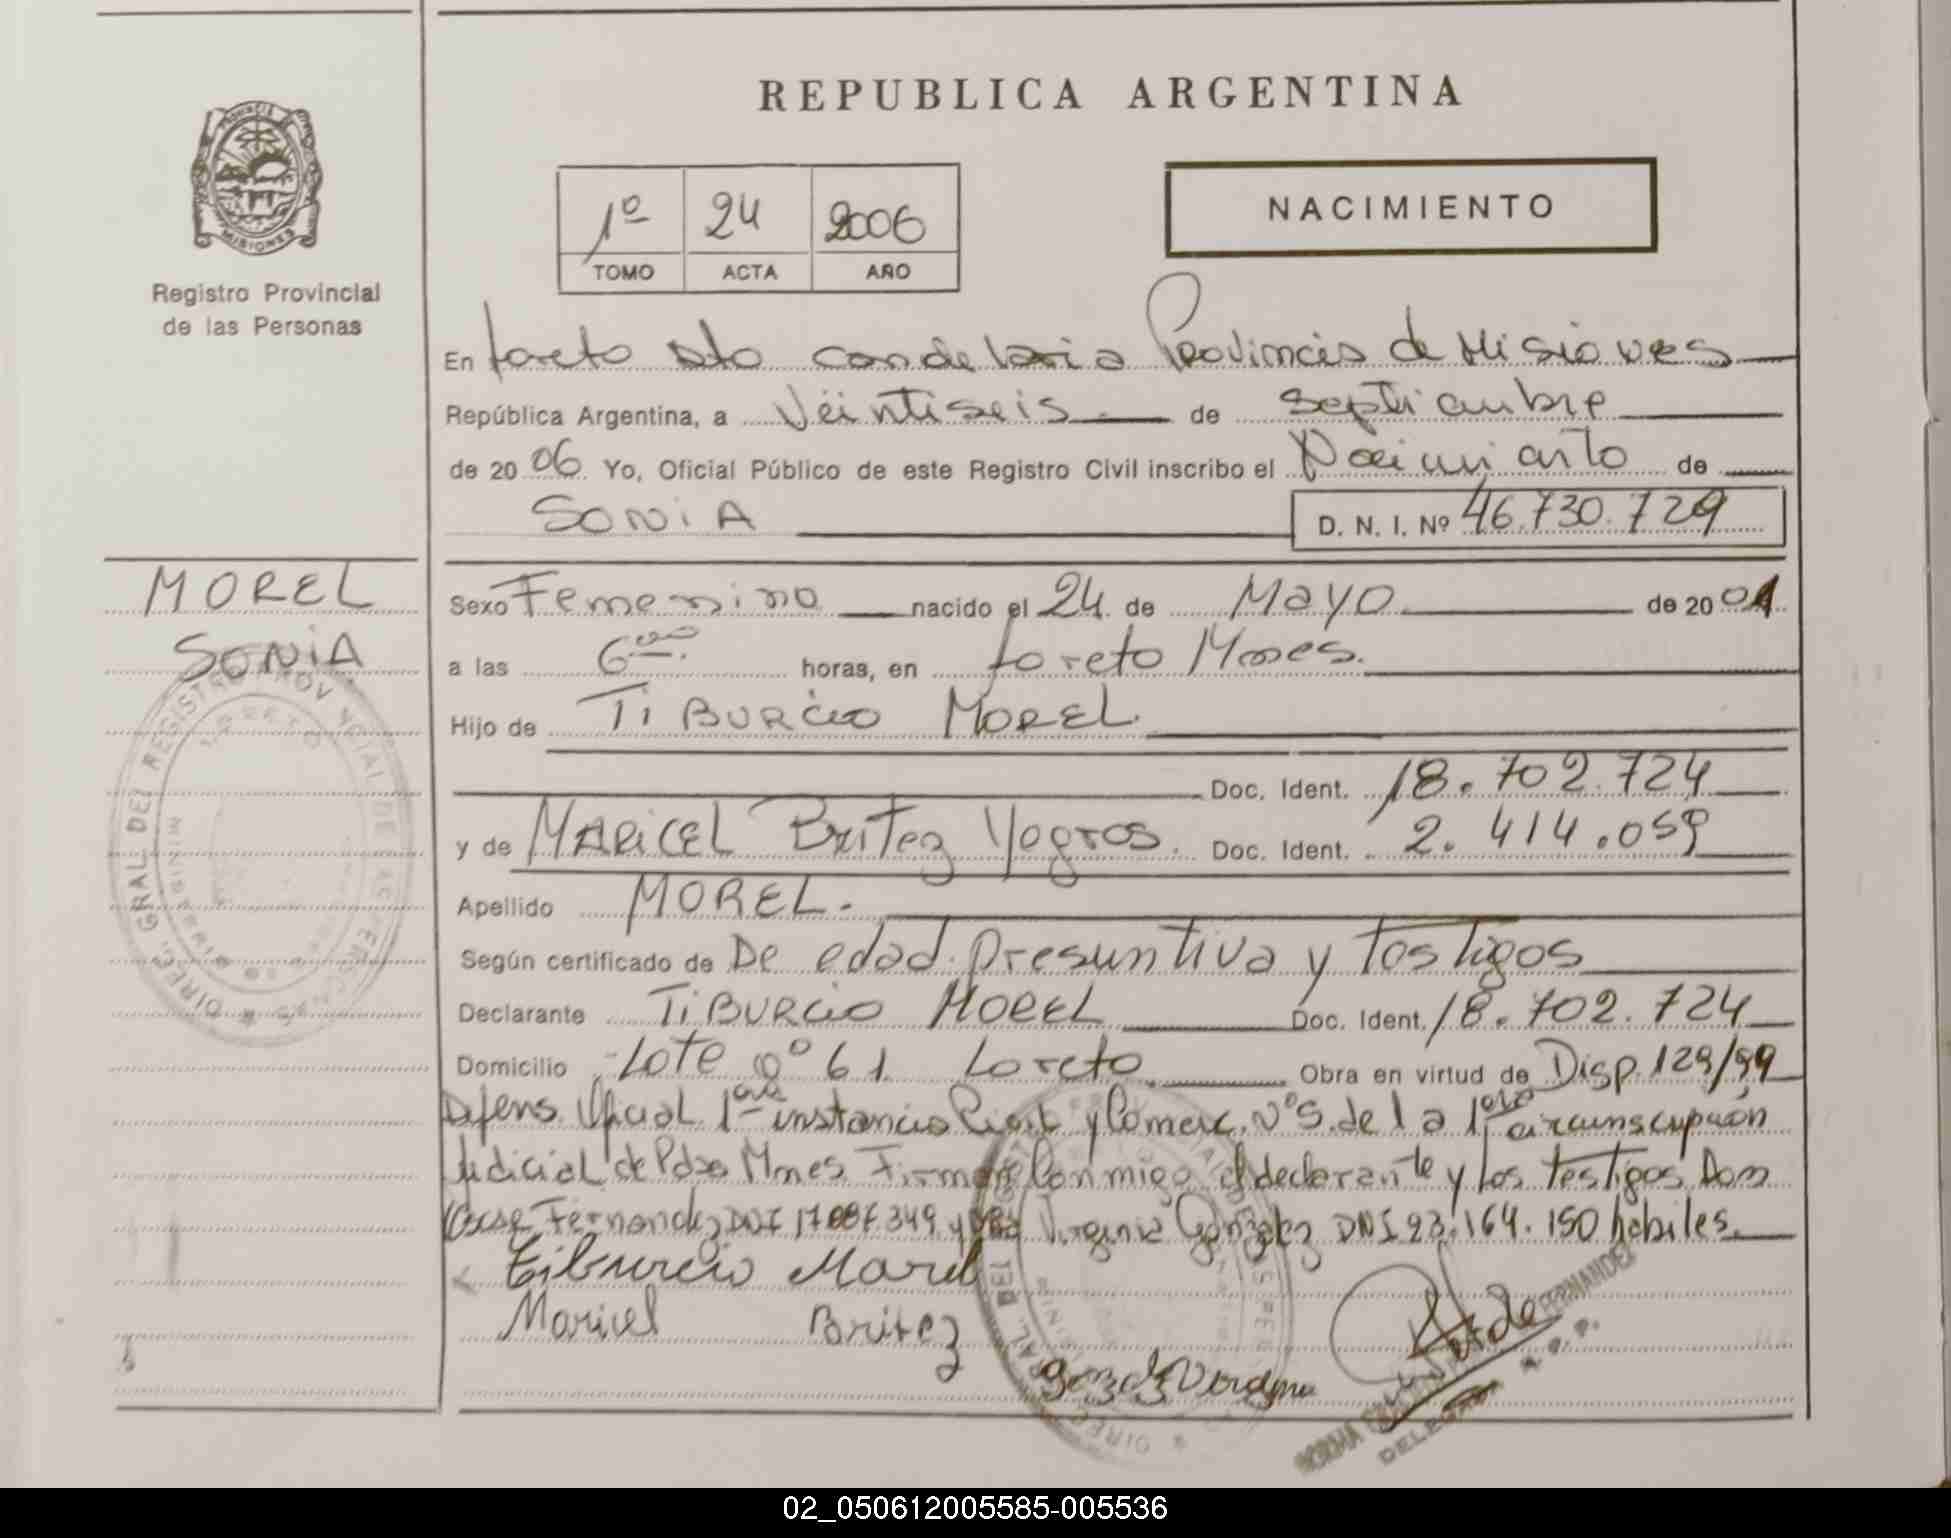 REPUBLICA ARGENTINA
PROVINCIA
MISIONES
Registro Provincial
de las Personas
1º 24 2006
TOMO ACTA AÑO
NACIMIENTO
En Loreto Dto Candelaria Provincia de Misiones
República Argentina, a Veintiseis de septiembre
de 2006 Yo, Oficial Público de este Registro Civil inscribo el Nacimiento de
SONIA D. N. I. Nº 46.730.729
MOREL
SONIA
Sexo Femenino nacido el 24 de Mayo de 2001
a las 6 horas, en Loreto Mnes.
Hijo de TIBURCIO MOREL
Doc. Ident. 18.702.724
y de MARICEL Britez Yegros. Doc. Ident. 2.414.059
Apellido MOREL.
Según certificado de De edad Presuntiva y Testigos
Declarante TIBURCIO MOREL Doc. Ident. 18.702.724
Domicilio Lote nº 61 Loreto Obra en virtud de Disp. 129/99
Defens. Oficial 1ra instancia Civil y Comerc. Nº 5 de la 1ra circunscripción
Judicial de Pdas Mnes. Firman Conmigo el declarante y los Testigos Don
Fernandez DNI y Virginia Gonzalez DNI 93.164.150 hábiles.
Tiburcio Morel
Maricel Britez
FERNANDEZ
NORMA
DELEGADA R.P.P.
DIREC. GRAL. DEL REGISTRO PROVINCIAL DE LAS PERSONAS
LORETO
02_050612005585-005536